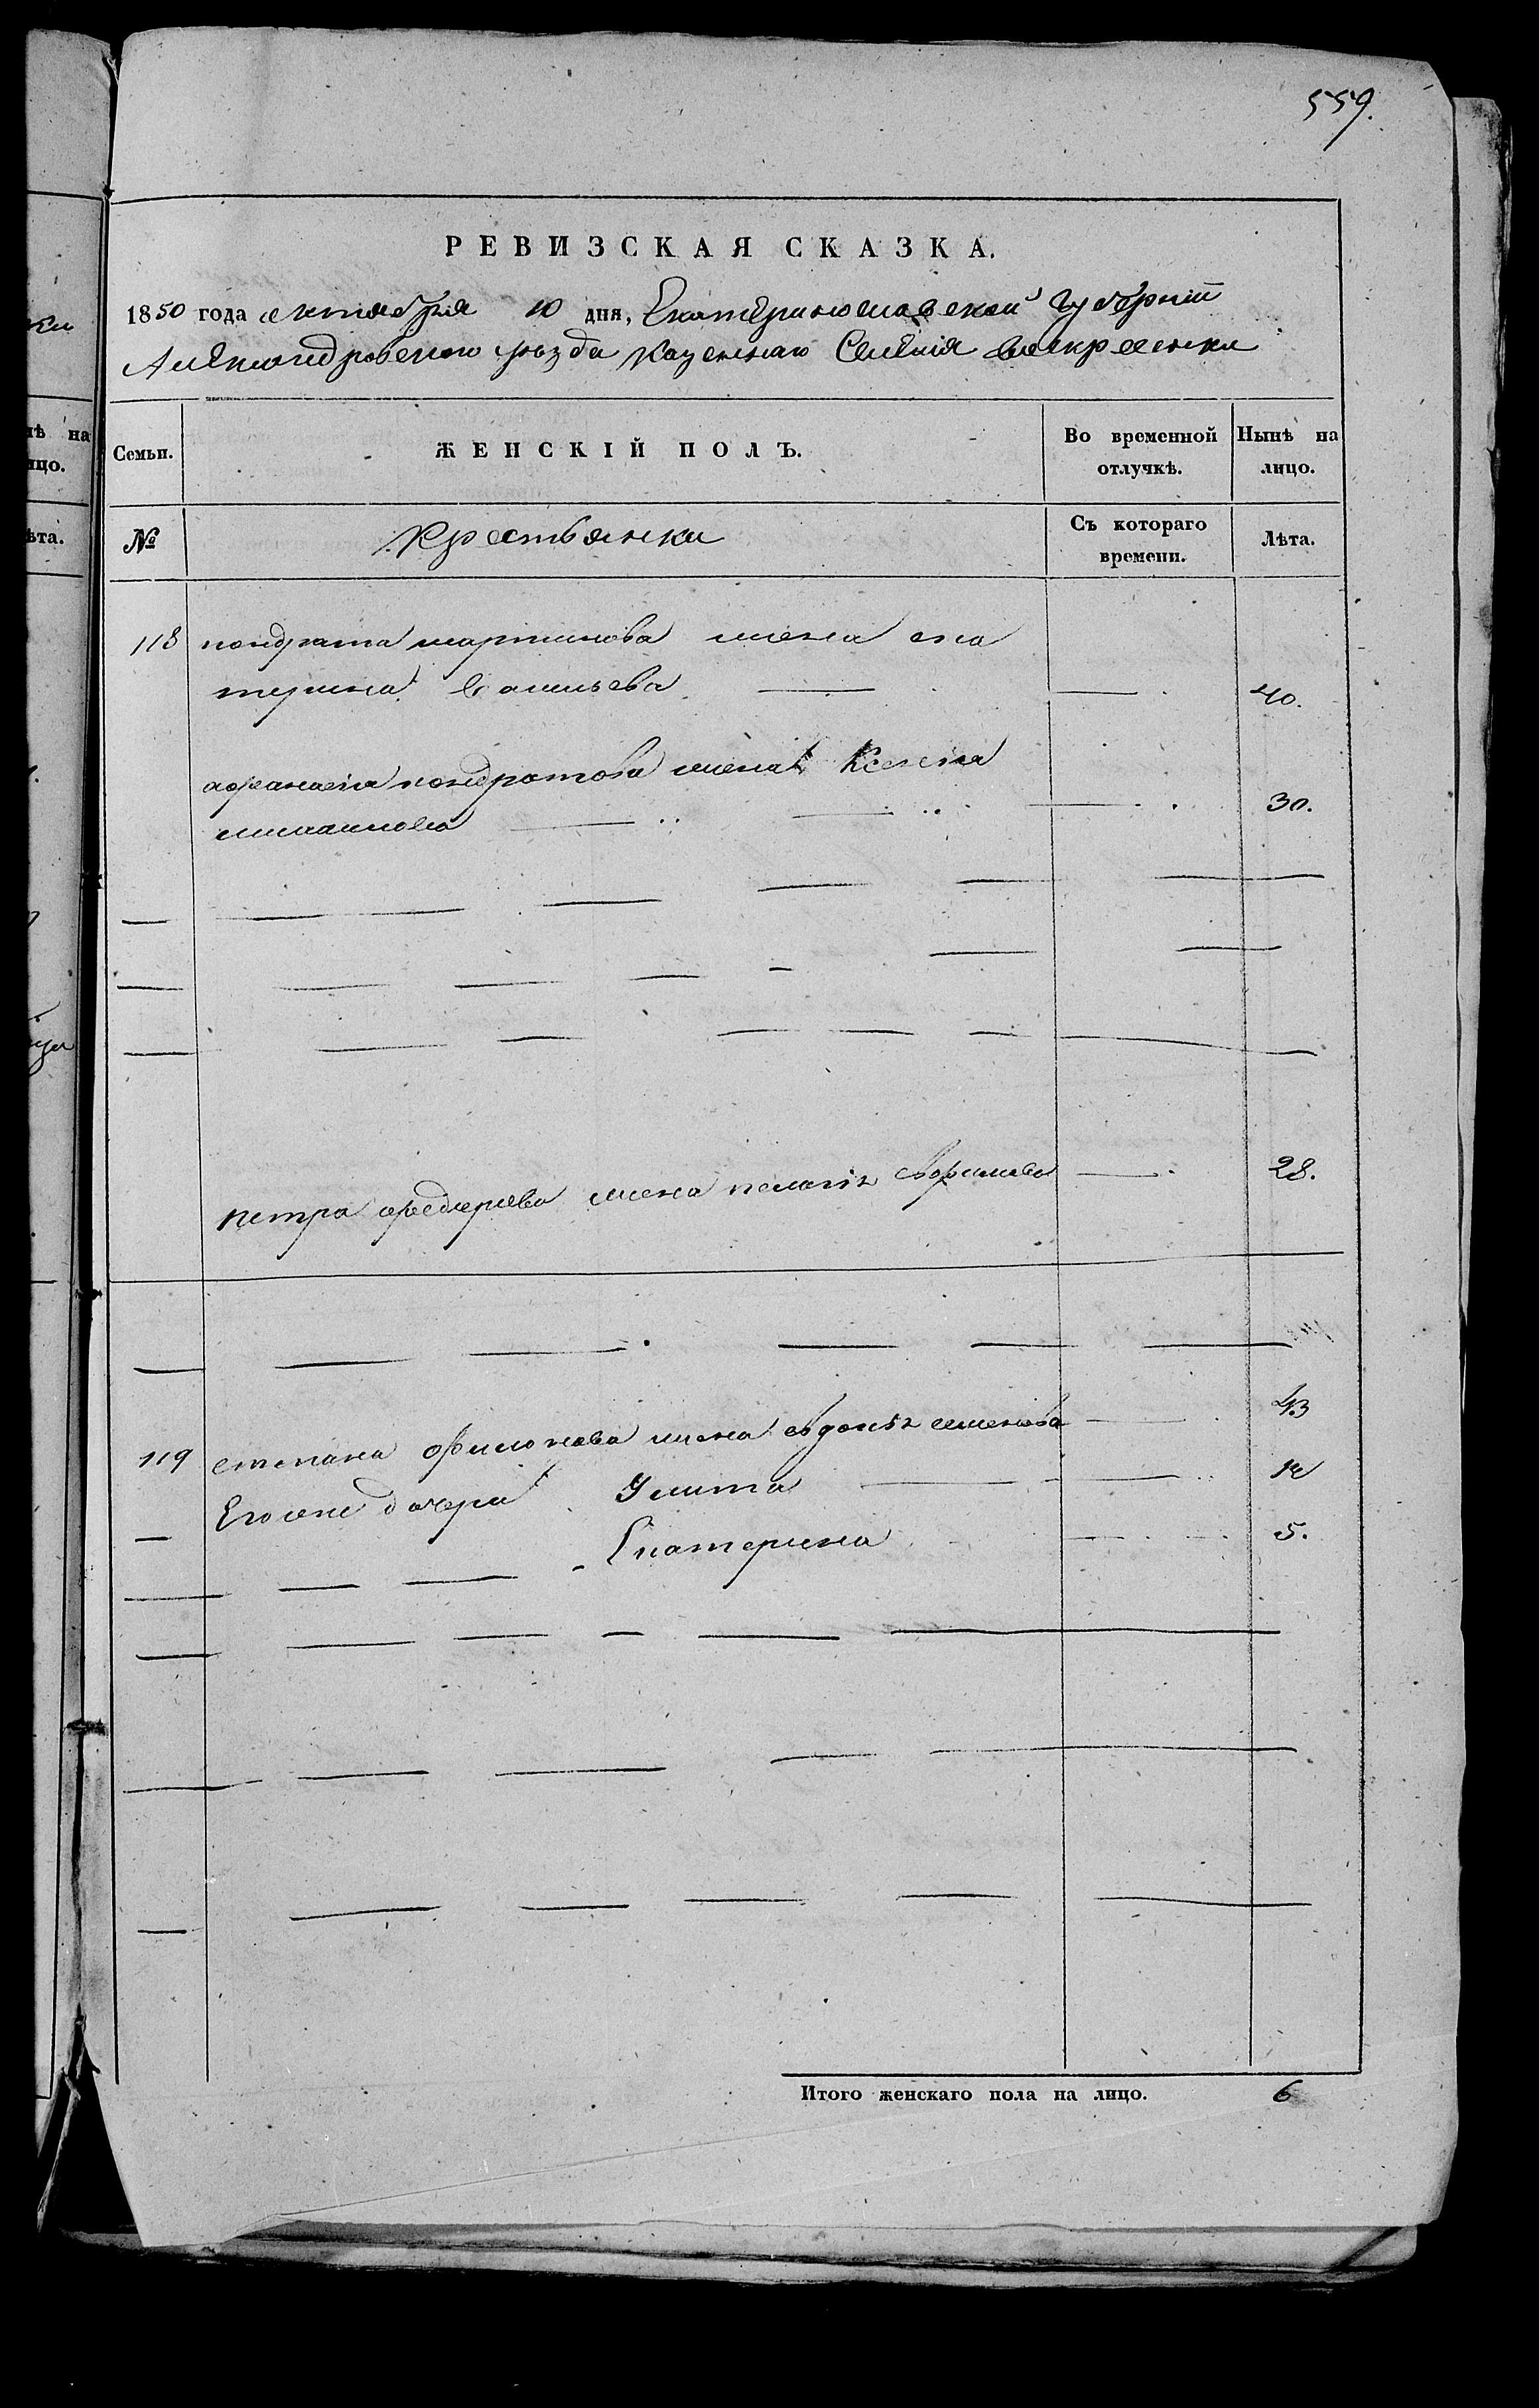 559.
РЕВИЗСКАЯ СКАЗКА.
1850 года октября 10 дня, Екатеринославской губерніи
Александровского уѣзда казеннаго Селенія воскресенки
Семьи.
ЖЕНСКІЙ ПОЛЪ.
Во временной отлучкѣ.
Нынѣ на лицо.
№
Крестьянки
Съ котораго времени.
Лѣта.
118 кондрата мартинова жена ека
терина васильева 40.
афанасія кондратова жена Ксенія
30.
петра федорова жена пелагія ефимова 28.
119 степана филонова жена евдокія семенова 43
Его же дочери Улита 12
Екатерина 5.
Итого женскаго пола на лицо. 6